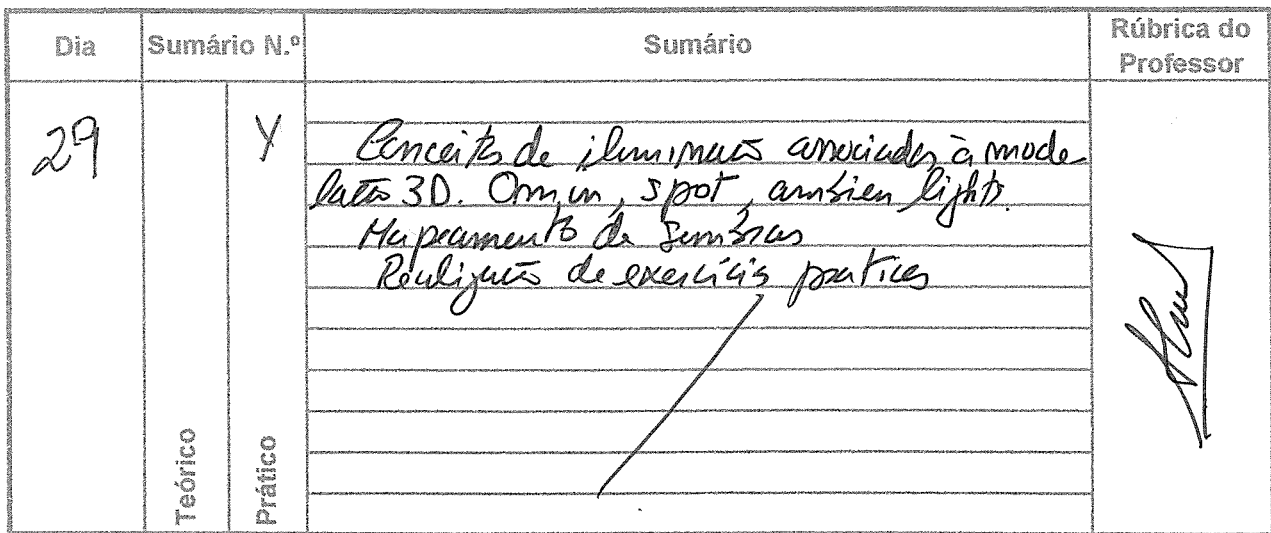 Dia Sumário N.º Sumário Rúbrica do Professor
29 Y Conceitos de iluminação associados à mode-
lação 3D. Omni, spot, ambien lights.
Mapeamento de sombras
Realização de exercícios praticos
Teórico
Prático